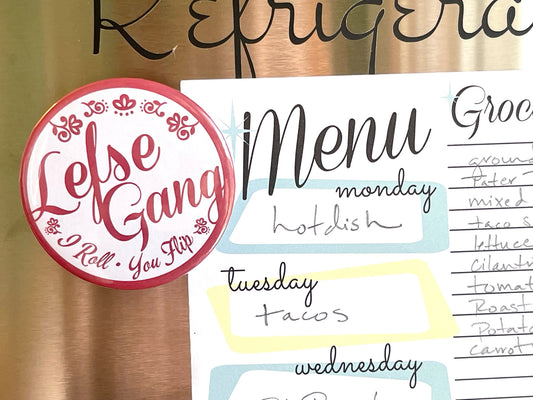 Refrigera
Lefse
Gang
I Roll • You Flip
Menu
monday
hotdish
tuesday
tacos
wednesday
Groc
groun
Tater T
mixed
tacos
lettuce
cilantr
tomat
Roast
Potato
carrot